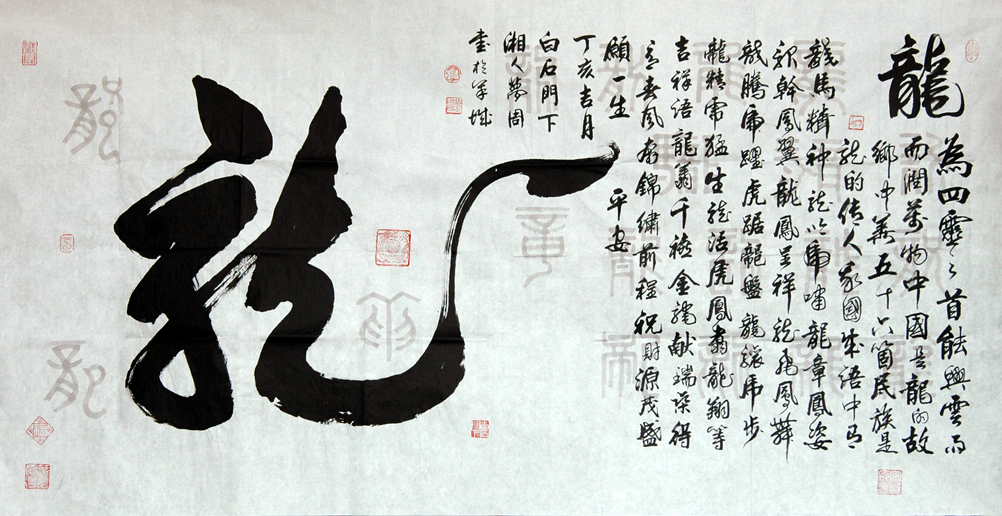 龍
為四靈之首能興雲雨
而潤萬物中國是龍的故
鄉中華五十六箇民族是
龙的傳人我國成语中有
龍馬精神龙吟虎嘯龍章鳳姿
鳳翼龍鳳呈祥龙飛鳳舞
龍騰虎躍虎踞龍盤龍驤虎步
龍精虎猛生龙活虎鳳翥龍翔等
吉祥语龍翁千禧金献瑞
春風錦繡前程祝財源茂盛
願一生平安
丁亥吉月
白石門下
湘人夢周
書於羊城
龍